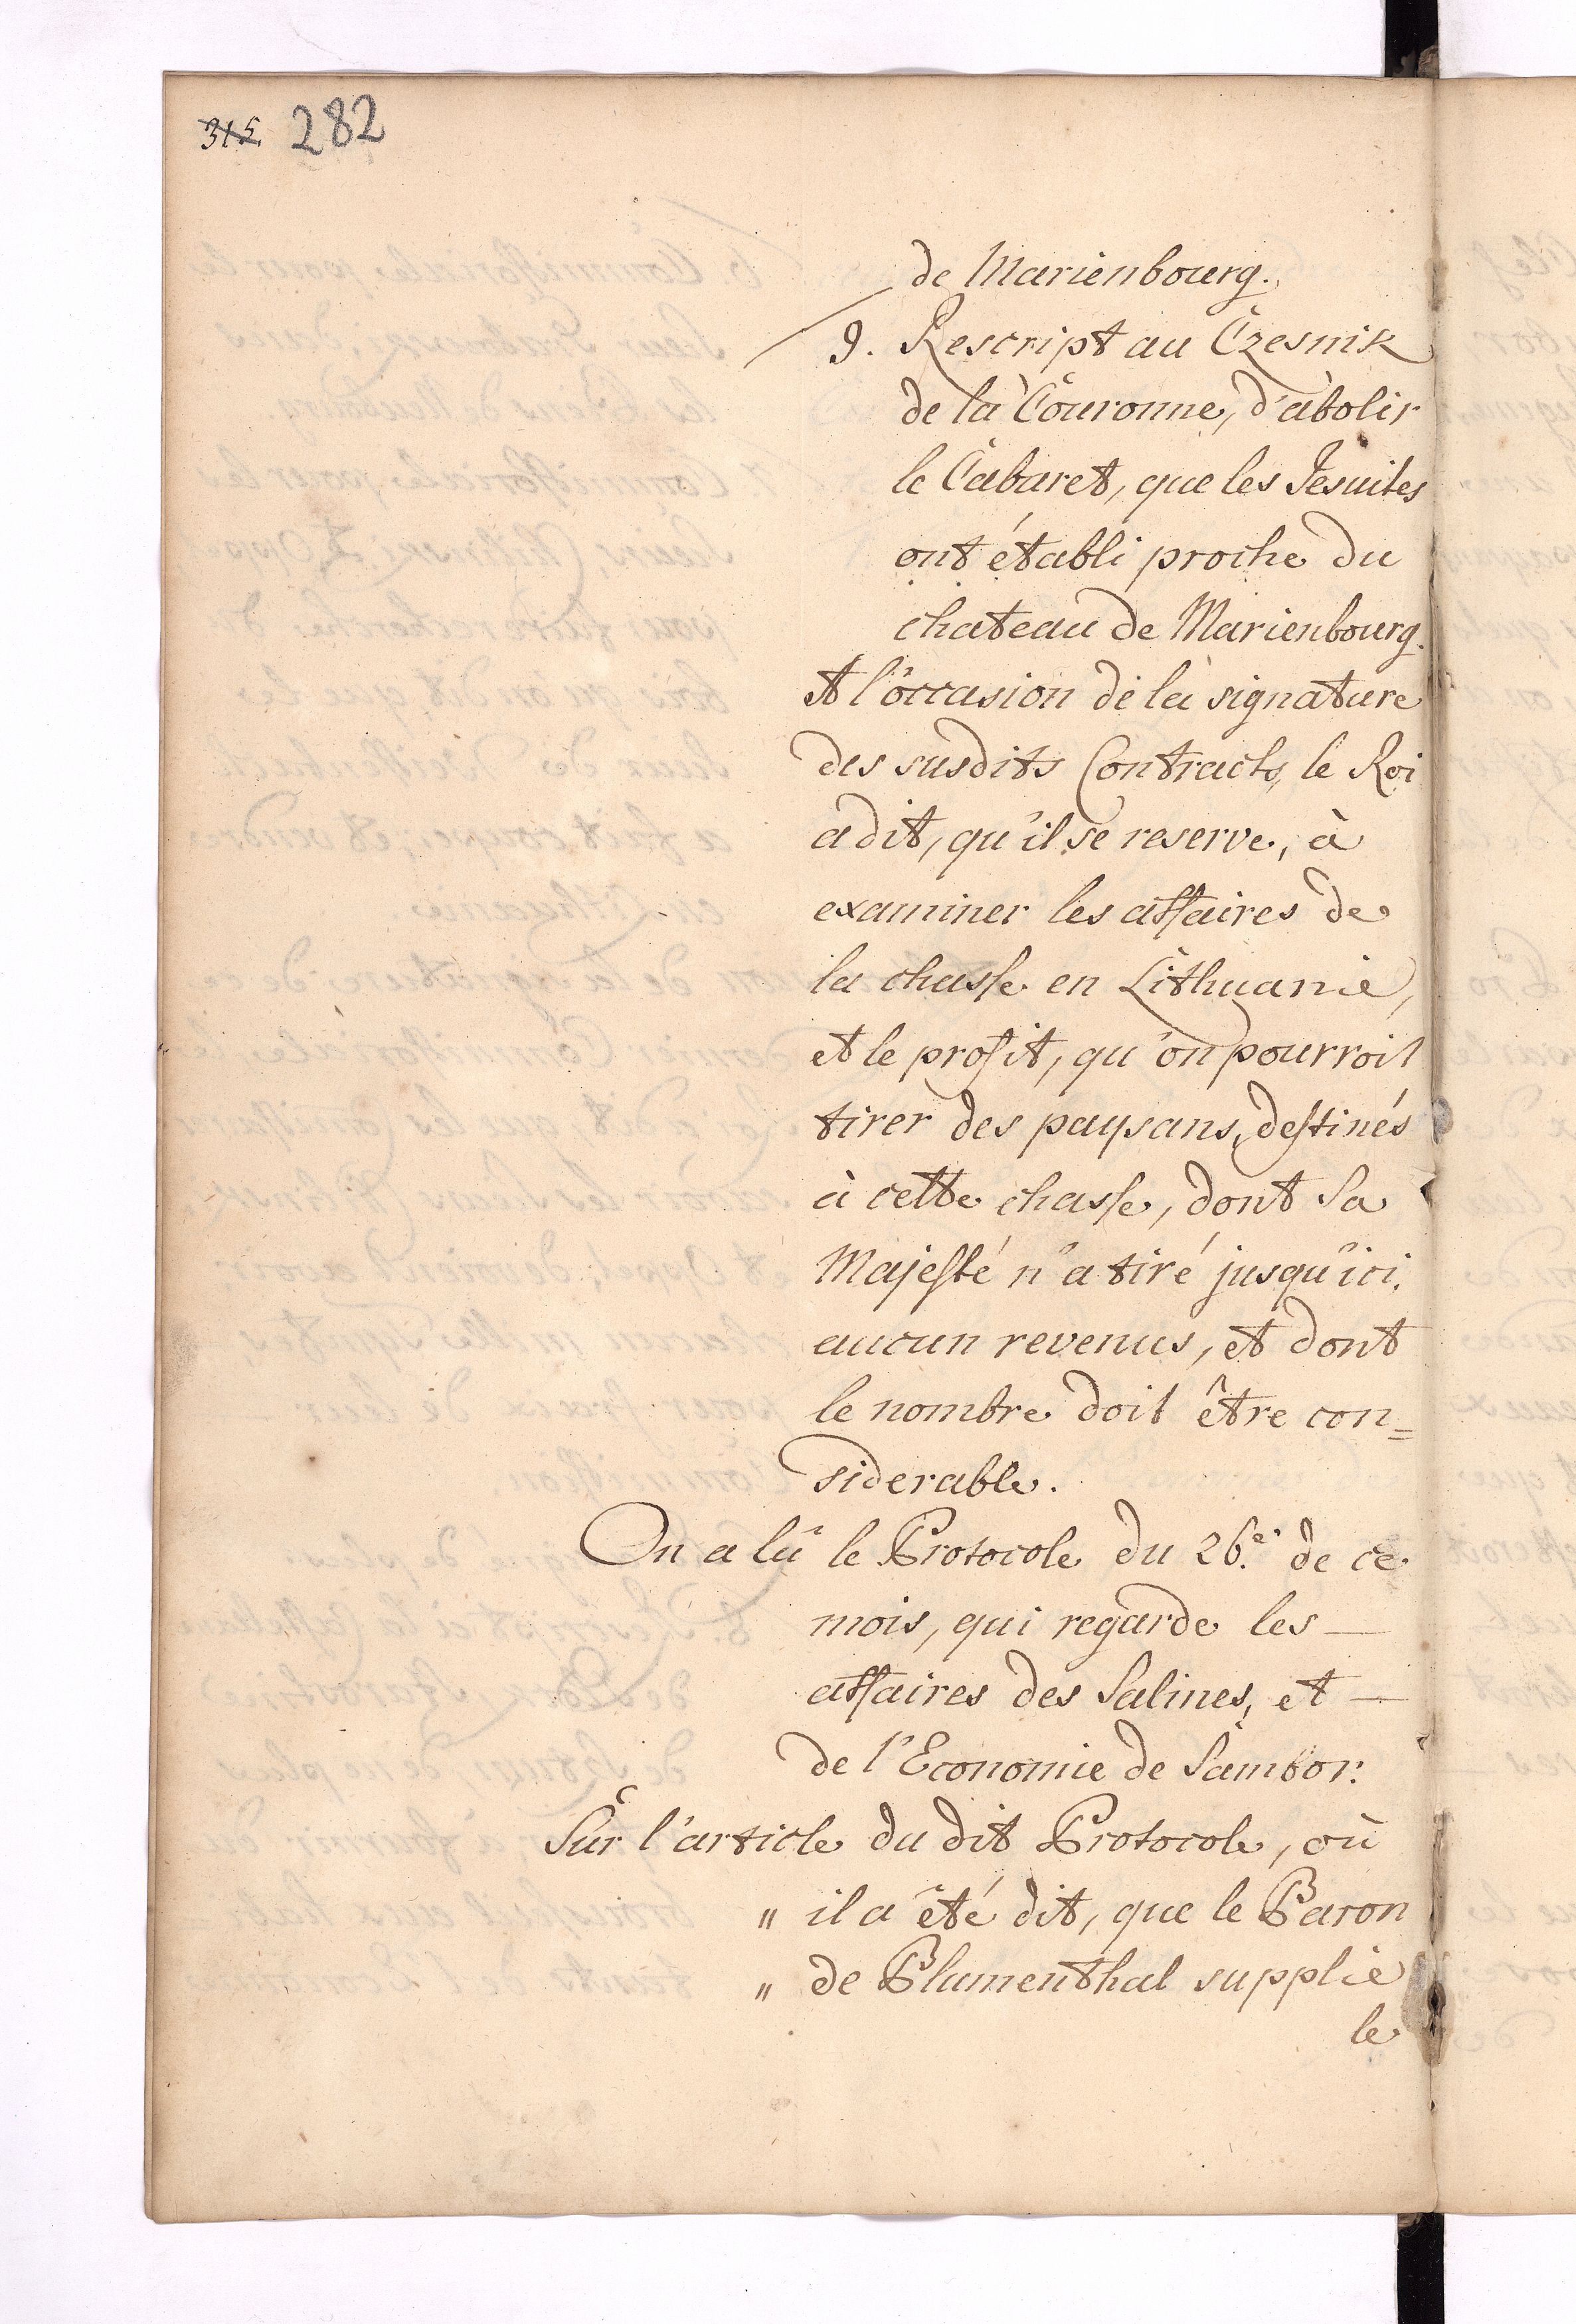 315 282
de Marienbourg.
9. Rescript au Czesnik
de la Couronne, d'abolir
le Cabaret, que les Jesuites
ont établi proche du
chateau de Marienbourg.
A l'occasion de la signature
des susdits Contracts, le Roi
a dit, qu'il se reserve, à
examiner les affaires de
la chasse en Lithuanie,
et le profit, qu'on pourroit
tirer des paysans, destinés
à cette chasse, dont Sa
Majesté n'a tiré jusqu'ici
aucun revenus, et dont
le nombre doit être con=
siderable.
On a lû le Protocole du 26.e de ce
mois, qui regarde les —
affaires des Salines, et —
de l'Economie de Sambor.
Sur l'article du dit Protocole, où
" il a été dit, que le Baron
" de Blumenthal supplie
le